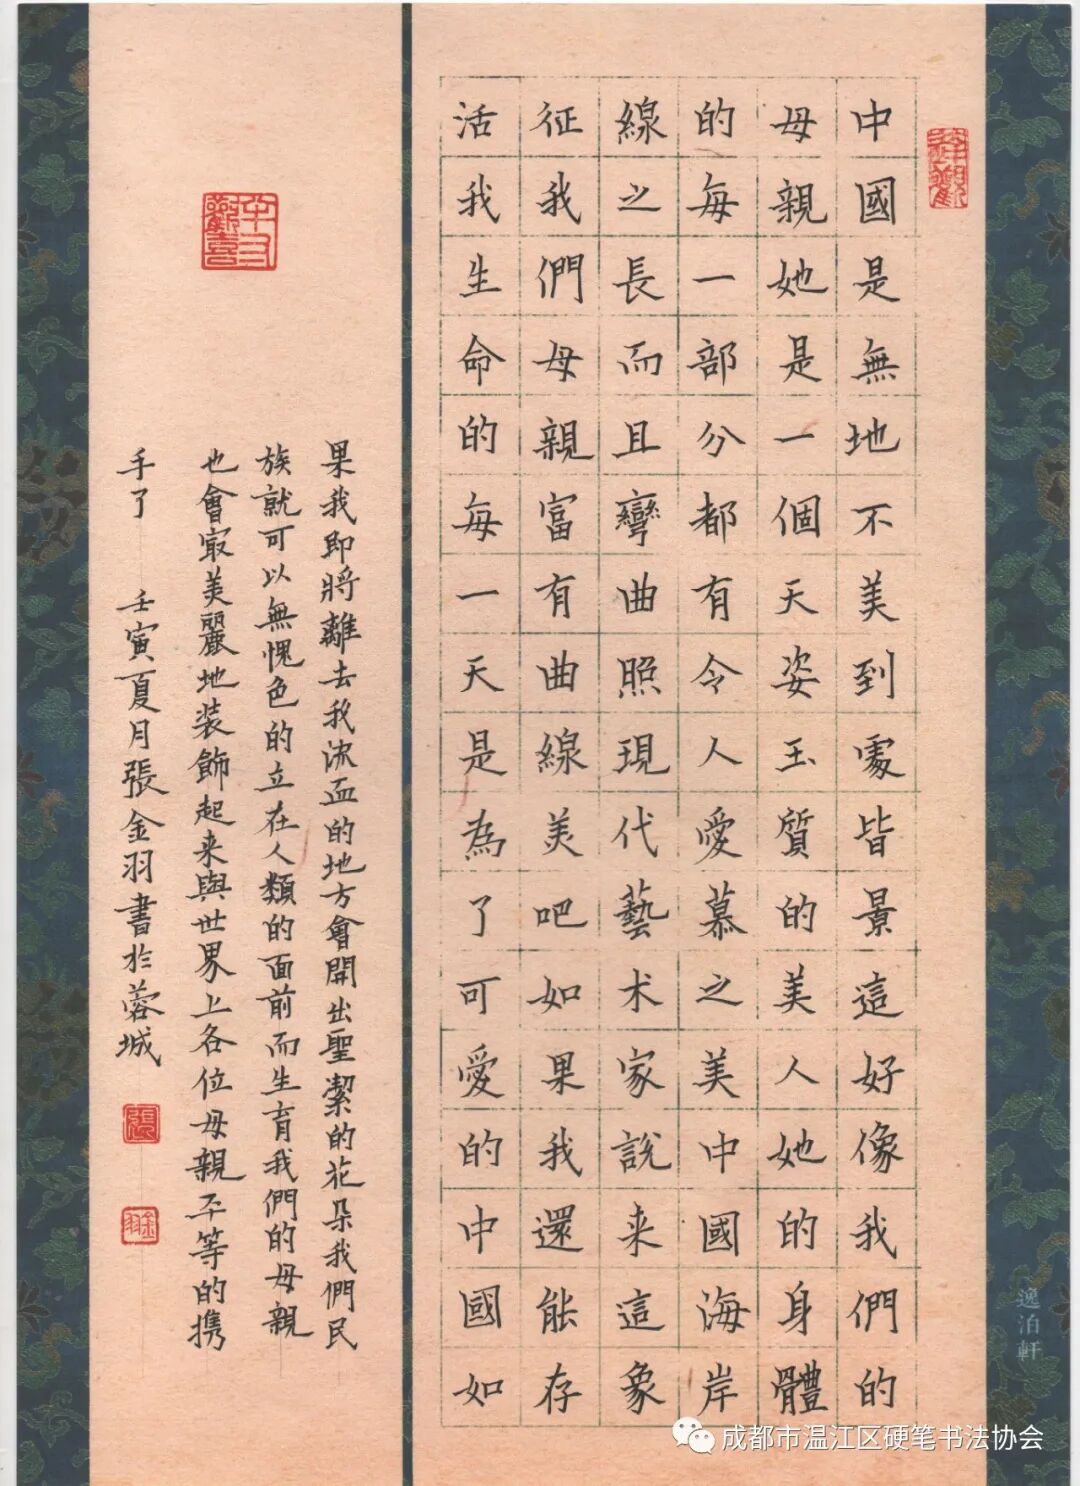 中國是無地不美到處皆景這好像我們的
母親她是一個天姿玉質的美人她的身體
的每一部分都有令人愛慕之美中國海岸
線之長而且彎曲照現代藝术家說来這象
征我們母親富有曲線美吧如果我還能存
活我生命的每一天是為了可愛的中國如
果我即將離去我流血的地方會開出聖潔的花朵我們民
族就可以無愧色的立在人類的面前而生育我們的母親
也會㝡美麗地装飾起来與世界上各位母親平等的携
手了 壬寅夏月張金羽書於蓉城
張
金羽
逸泊軒
成都市温江区硬笔书法协会